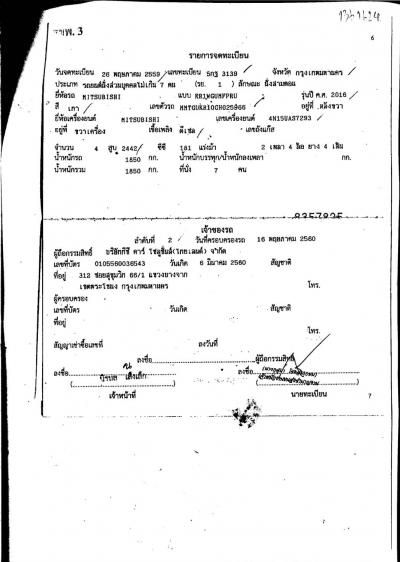 6
รายการจดทะเบียน
วันจดทะเบียน 26 พฤษภาคม 2559 เลขทะเบียน 5กฐ 3139 จังหวัด กรุงเทพมหานคร
ประเภท รถยนต์นั่งส่วนบุคคลไม่เกิน 7 คน (รย. 1 ) ลักษณะ นั่งสามตอน
ยี่ห้อรถ MITSUBISHI แบบ รุ่นปี ค.ศ. 2016
สี เทา เลขตัวรถ อยู่ที่
ยี่ห้อเครื่องยนต์ MITSUBISHI เลขเครื่องยนต์ 4N15UAS7293
อยู่ที่ ขวาเครื่อง เชื้อเพลิง ดีเซล เลขถังแก๊ส
จำนวน 4 สูบ 2442 ซีซี 181 แรงม้า 2 เพลา 4 ล้อ ยาง 4 เส้น
น้ำหนักรถ 1850 กก. น้ำหนักบรรทุก/น้ำหนักลงเพลา กก.
น้ำหนักรวม 1850 กก. ที่นั่ง 7 คน
เจ้าของรถ
ลำดับที่ 2 วันที่ครอบครองรถ 16 พฤษภาคม 2560
ผู้ถือกรรมสิทธิ์ บริษัท คาร์ โซลูชั่นส์(ไทยแลนด์) จำกัด
เลขที่บัตร 0105560036543 วันเกิด 6 มีนาคม 2560 สัญชาติ
ที่อยู่ 312 ซอยสุขุมวิท 66/1 แขวงบางจาก
เขตพระโขนง กรุงเทพมหานคร โทร.
ผู้ครอบครอง
เลขที่บัตร วันเกิด สัญชาติ
ที่อยู่
โทร.
สัญญาเช่าซื้อเลขที่ ลงวันที่
ลงชื่อ ผู้ถือกรรมสิทธิ์
ลงชื่อ ลงชื่อ
เจ้าหน้าที่ นายทะเบียน
7